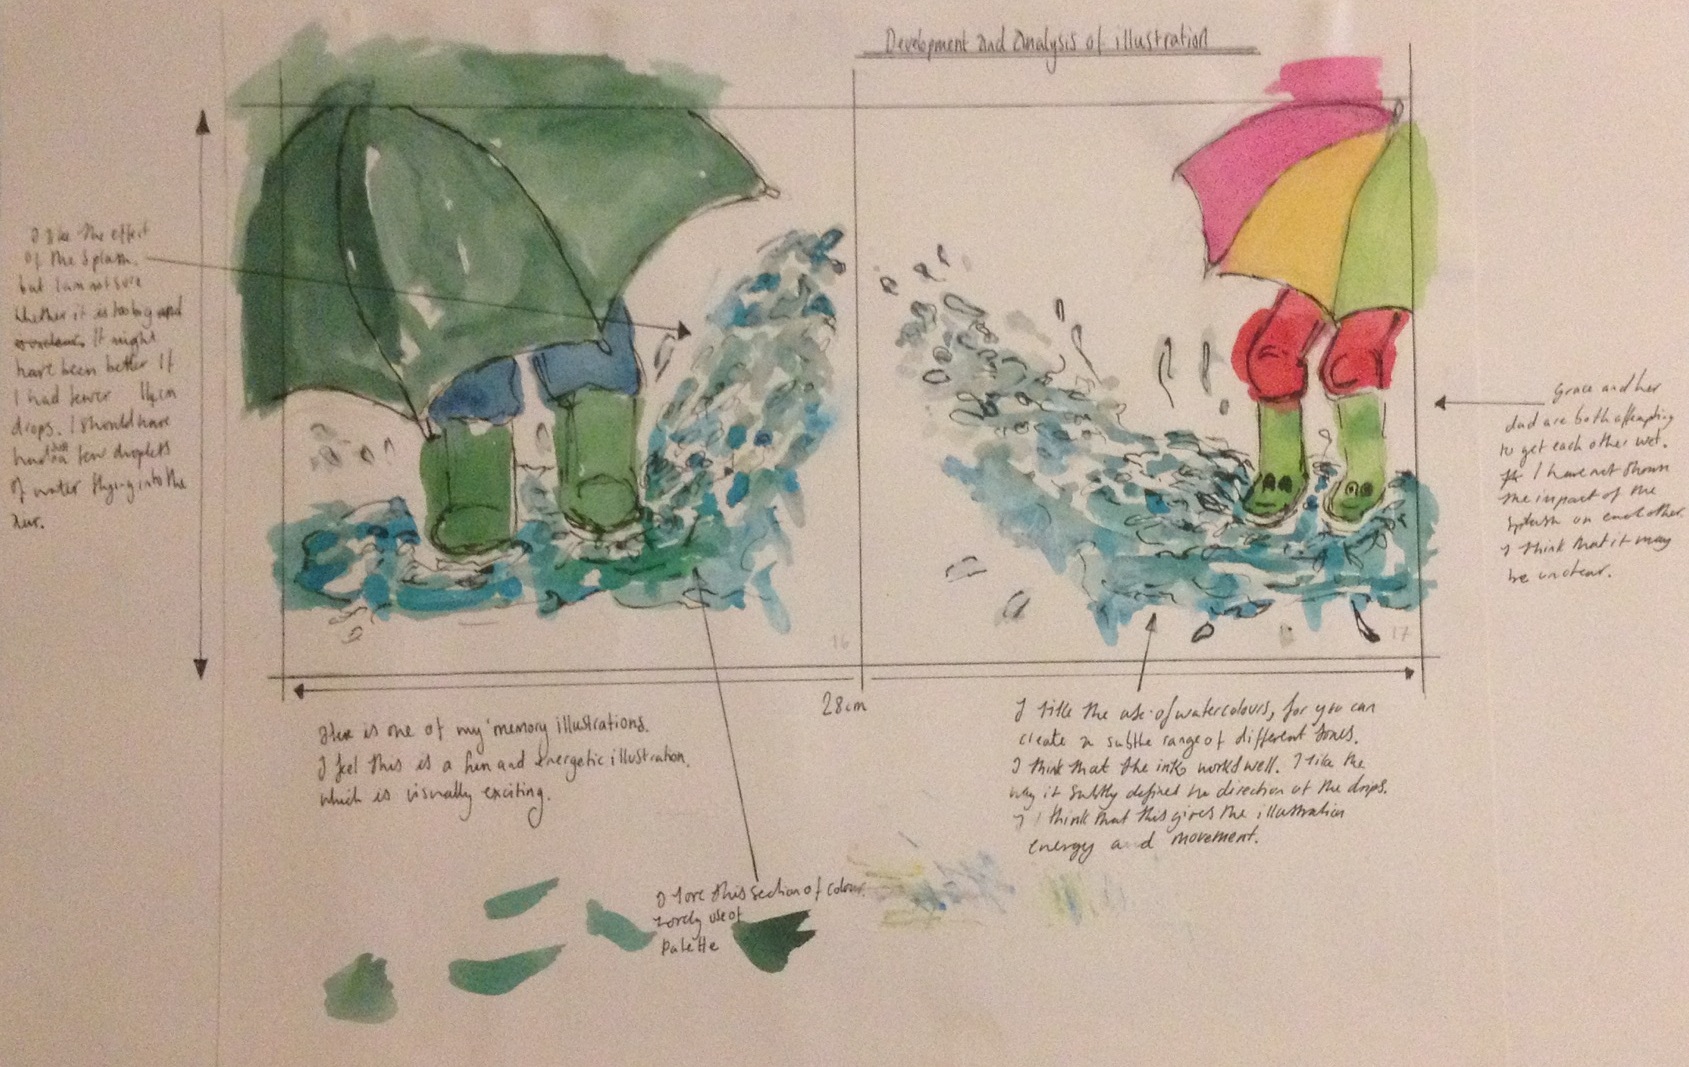 Development and Analysis of illustration
I like the effect
of the splash.
but I am not sure
whether it is too big and
It might
have been better if
I had fewer
drops. I should have
had just a few droplets
of water flying into the
air.
14cm
Grace and her
dad are both attempting
to get each other wet.
I have not shown
the impact of the
splash on each other.
I think that it may
be unclear.
16
17
28cm
Here is one of my 'memory illustrations.
I feel this is a fun and energetic illustration,
which is visually exciting.
I like the use of watercolours, for you can
create a subtle range of different tones.
I think that the inks worked well. I like the
way it subtly defined the direction of the drops.
I think that this gives the illustration
energy and movement.
I love this section of colour.
Lovely use of
palette